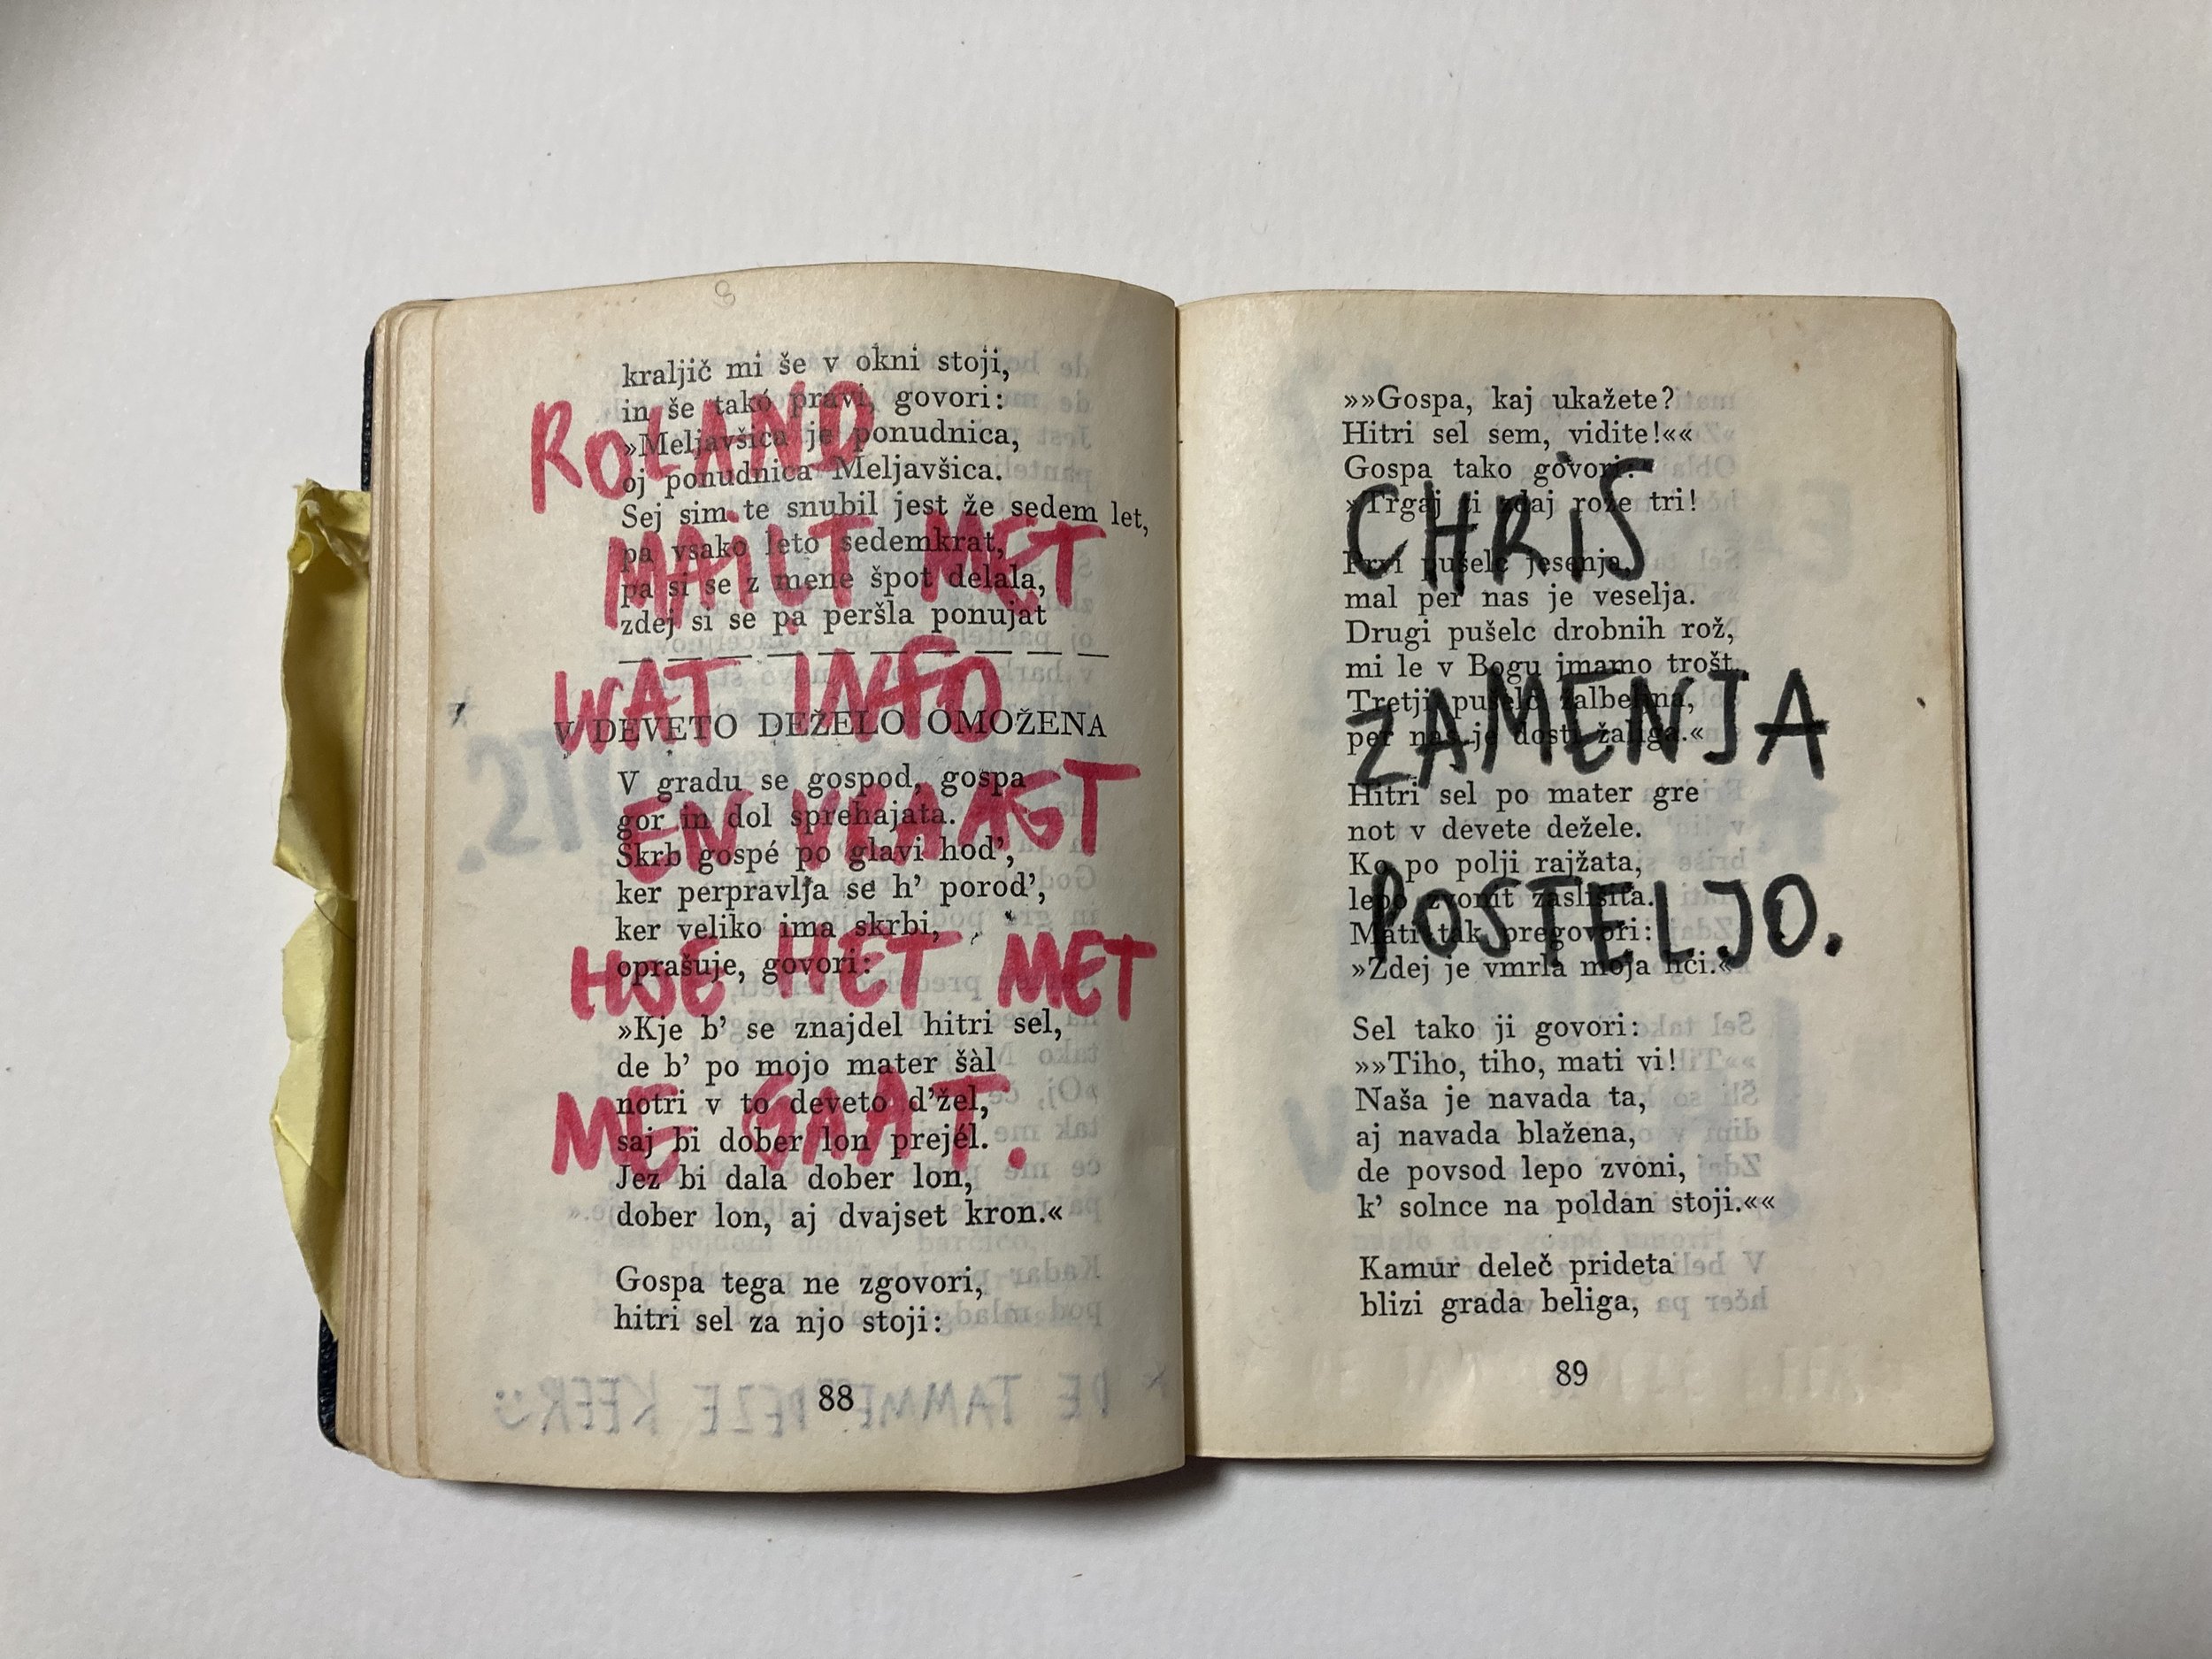 kraljič mi še v okni stoji,
in še takó pravi, govori:
»Meljavšica je ponudnica,
oj ponudnica Meljavšica.
Sej sim te snubil jest že sedem let,
pa vsako leto sedemkrat,
pa si se z mene špot delala,
zdej si se pa peršla ponujat
V DEVETO DEŽELO OMOŽENA
V gradu se gospod, gospa
gor in dol sprehajata.
Skrb gospé po glavi hod’,
ker perpravlja se h’ porod’,
ker veliko ima skrbi,
oprašuje, govori:
»Kje b’ se znajdel hitri sel,
de b’ po mojo mater šàl
notri v to deveto d’žel,
saj bi dober lon prejél.
Jez bi dala dober lon,
dober lon, aj dvajset kron.«
Gospa tega ne zgovori,
hitri sel za njo stoji:
88
ROLAND
MAILT MET
WAT INFO
EN VRAAGT
HOE HET MET
ME GAAT.
DE TAMME DEZE KEER
»»Gospa, kaj ukažete?
Hitri sel sem, vidite!««
Gospa tako govori:
»Trgaj ti zdaj rože tri!
Prvi pušelc jesenja,
mal per nas je veselja.
Drugi pušelc drobnih rož,
mi le v Bogu jmamo trošt.
Tretji pušelc žalbenna,
per nas je dosti žaliga.«
Hitri sel po mater gre
not v devete dežele.
Ko po polji rajžata,
lepo zvonit zaslišita.
Mati tak pregovori:
»Zdej je vmrla moja hči.«
Sel tako ji govori:
»»Tiho, tiho, mati vi!
Naša je navada ta,
aj navada blažena,
de povsod lepo zvoni,
k’ solnce na poldan stoji.««
Kamur deleč prideta
blizi grada beliga,
89
CHRIS
ZAMENJA
POSTELJO.